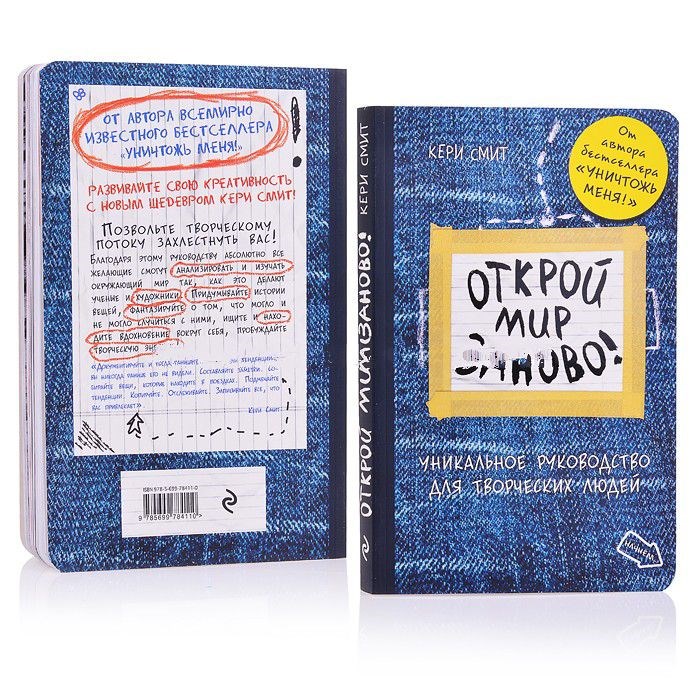 ОТ АВТОРА ВСЕМИРНО
ИЗВЕСТНОГО БЕСТСЕЛЛЕРА
«УНИЧТОЖЬ МЕНЯ!»
РАЗВИВАЙТЕ СВОЮ КРЕАТИВНОСТЬ
С НОВЫМ ШЕДЕВРОМ КЕРИ СМИТ!
ПОЗВОЛЬТЕ ТВОРЧЕСКОМУ
ПОТОКУ ЗАХЛЕСТНУТЬ ВАС!
БЛАГОДАРЯ ЭТОМУ РУКОВОДСТВУ АБСОЛЮТНО ВСЕ
ЖЕЛАЮЩИЕ СМОГУТ АНАЛИЗИРОВАТЬ И ИЗУЧАТЬ
ОКРУЖАЮЩИЙ МИР ТАК, КАК ЭТО ДЕЛАЮТ
УЧЕНИЕ И ХУДОЖНИКИ. ПРИДУМЫВАЙТЕ ИСТОРИИ
ВЕЩЕЙ, ФАНТАЗИРУЙТЕ О ТОМ, ЧТО МОГЛО И
НЕ МОГЛО СЛУЧИТЬСЯ С НИМИ, ИЩИТЕ И НАХО-
ДИТЕ ВДОХНОВЕНИЕ ВОКРУГ СЕБЯ, ПРОБУЖДАЙТЕ
ТВОРЧЕСКУЮ
«ДОКУМЕНТИРУЙТЕ И
ВЫ НИКОГДА РАНЬШЕ ЕГО НЕ ВИДЕЛИ. СОСТАВЛЯЙТЕ ЗАМЕТКИ. СО-
БИРАЙТЕ ВЕЩИ, КОТОРЫЕ НАХОДИТЕ В ПОЕЗДКАХ. ПОДМЕЧАЙТЕ
ТЕНДЕНЦИИ. КОПИРУЙТЕ. ОТСЛЕЖИВАЙТЕ. ЗАПИСЫВАЙТЕ ВСЕ, ЧТО
ВАС ПРИВЛЕКАЕТ»
КЕРИ СМИТ
ISBN 978-5-699-78411-0
9 785699 784110 >
ОТКРОЙ МИР ЗАНОВО! КЕРИ СМИТ
КЕРИ СМИТ
От
автора
бестселлера
«УНИЧТОЖЬ
МЕНЯ!»
ОТКРОЙ
МИР
ЗАНОВО!
УНИКАЛЬНОЕ РУКОВОДСТВО
ДЛЯ ТВОРЧЕСКИХ ЛЮДЕЙ